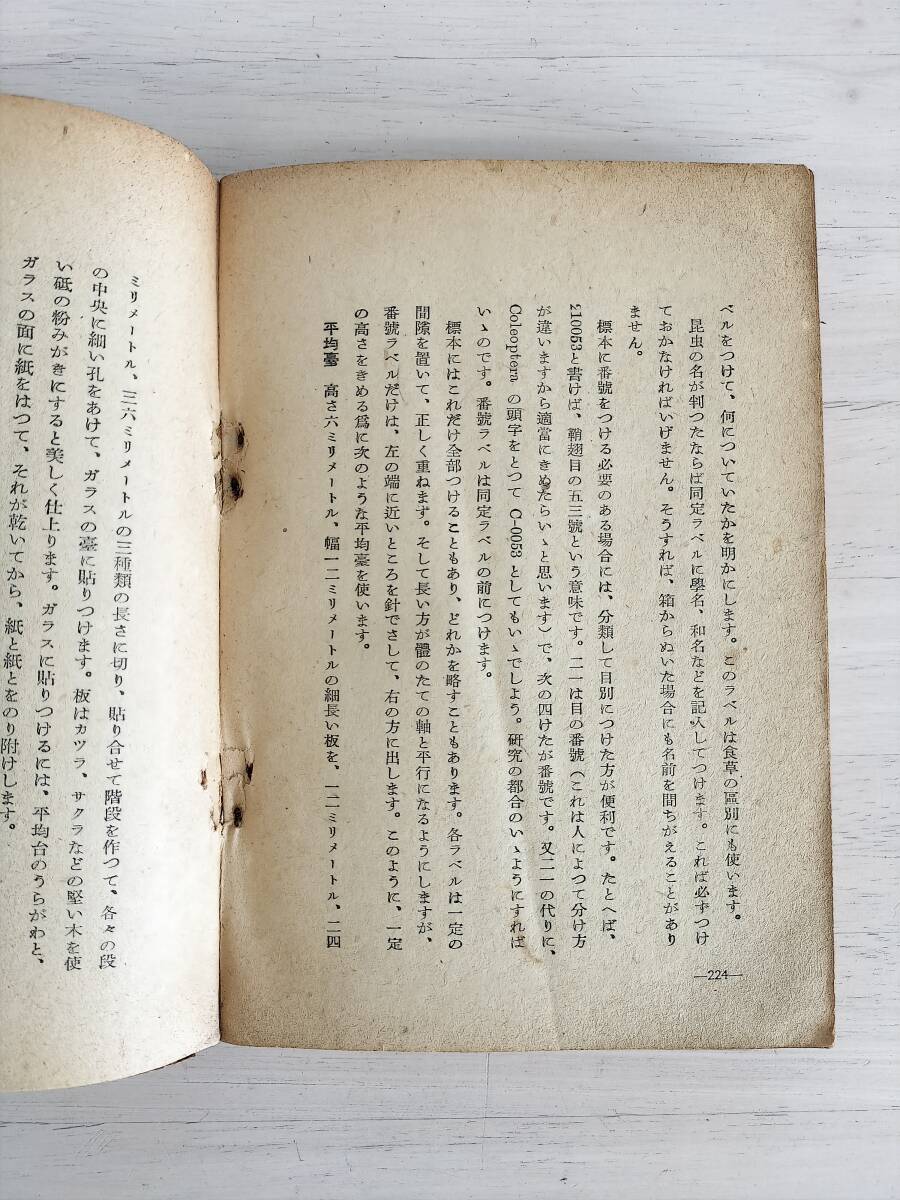 ベルをつけて、何についていたかを明かにします。このラベルは食草の區別にも使います。
昆虫の名が判つたならば同定ラベルに學名、和名などを記入してつけます。これは必ずつけ
ておかなければいけません。そうすれば、箱からぬいた場合にも名前を間ちがえることがあり
ません。
標本に番號をつける必要のある場合には、分類して目別につけた方が便利です。たとへば、
210053と書けば、鞘翅目の五三號という意味です。二一は目の番號（これは人によつて分け方
が違いますから適當にきめたらいゝと思います）で、次の四けたが番號です。又二一の代りに、
Coleoptera の頭字をとつて C-0053 としてもいゝでしよう。研究の都合のいゝようにすれば
いゝのです。番號ラベルは同定ラベルの前につけます。
標本にはこれだけ全部つけることもあり、どれかを略すこともあります。各ラベルは一定の
間隙を置いて、正しく重ねます。そして長い方が體のたての軸と平行になるようにしますが、
番號ラベルだけは、左の端に近いところを針でさして、右の方に出します。このように、一定
の高さをきめる爲に次のような平均臺を使います。
平均臺 高さ六ミリメートル、幅一二ミリメートルの細長い板を、一二ミリメートル、二四
—224—
ミリメートル、三六ミリメートルの三種類の長さに切り、貼り合せて階段を作つて、各々の段
の中央に細い孔をあけて、ガラスの臺に貼りつけます。板はカツラ、サクラなどの堅い木を使
い砥の粉みがきにすると美しく仕上ります。ガラスに貼りつけるには、平均台のうらがわと、
ガラスの面に紙をはつて、それが乾いてから、紙と紙とをのり附けします。